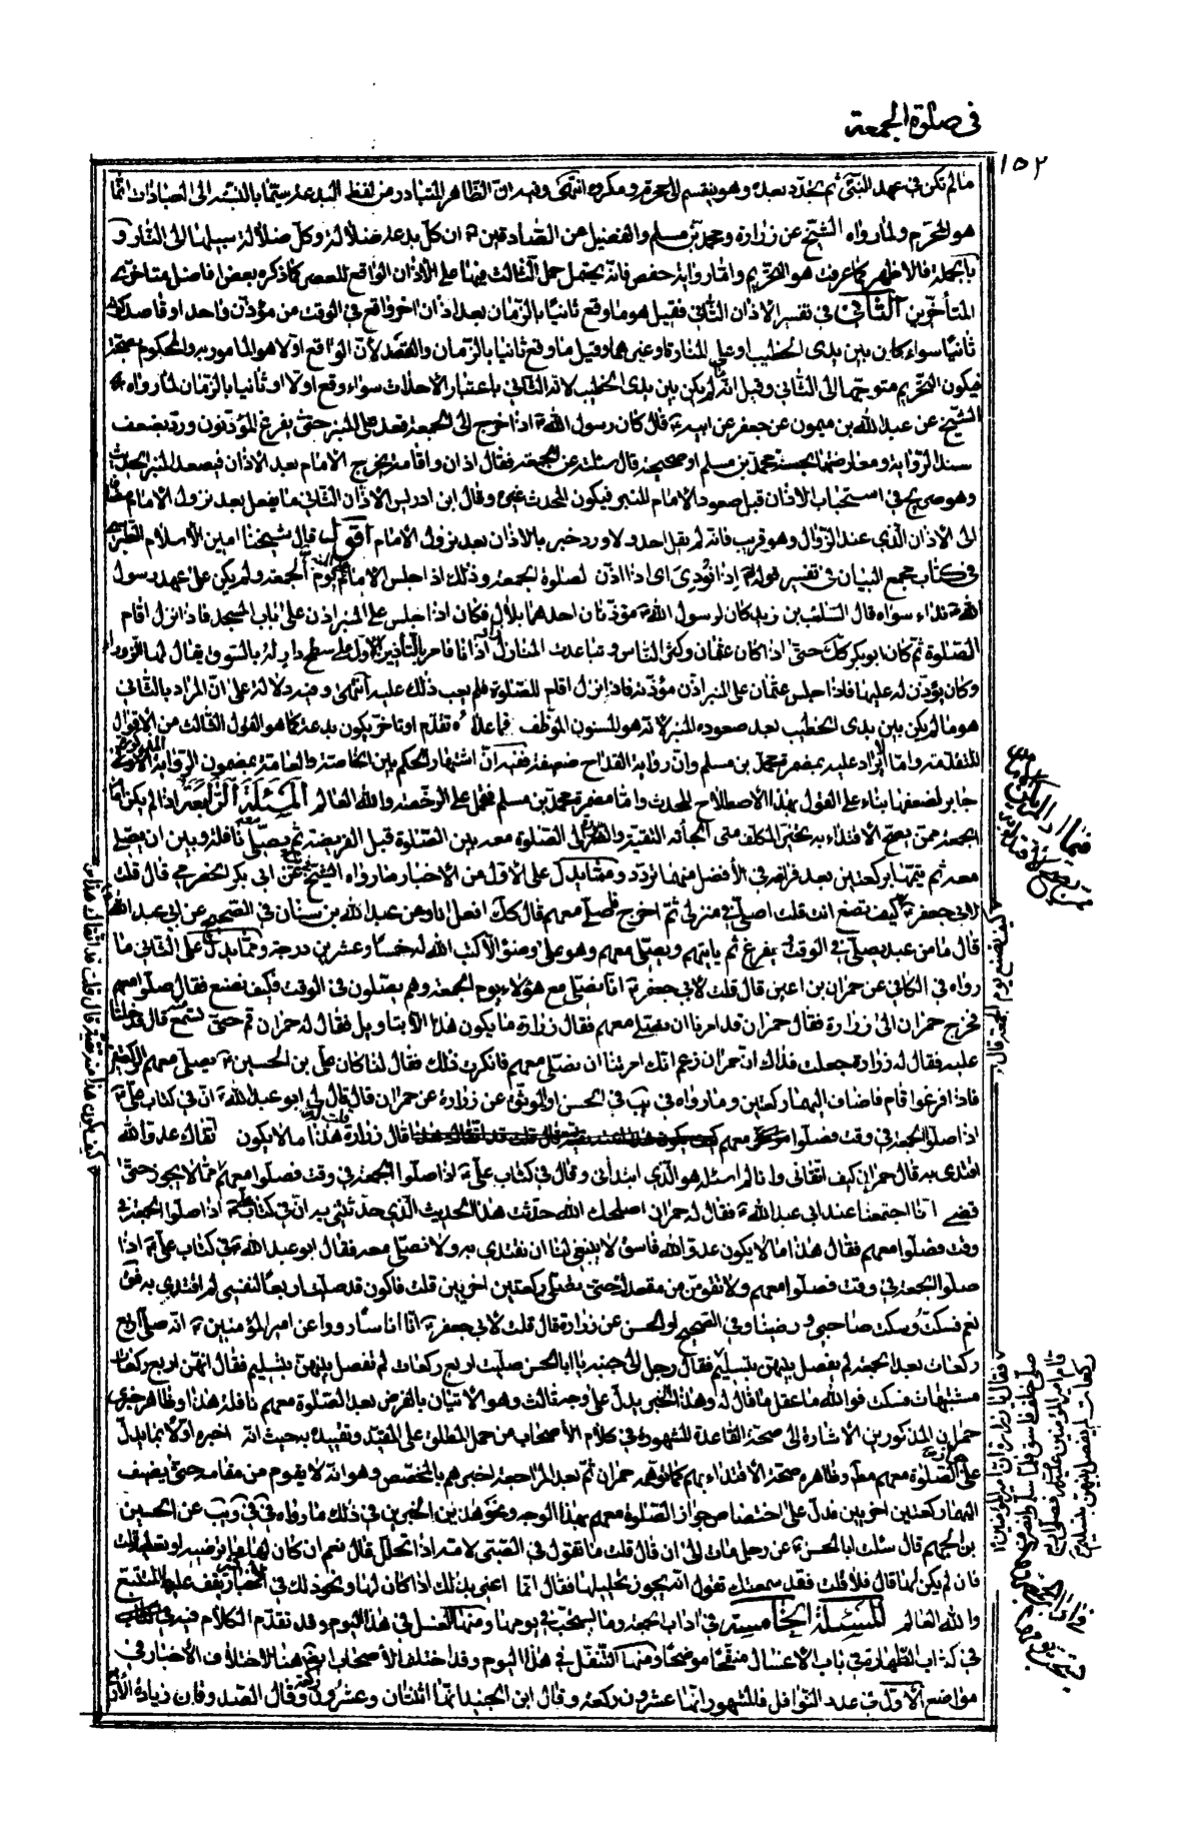 في صلوة الجمعة
١٥٢
ما لم تكن في عهد النبي ثم تجدد بعده وهو ينقسم الى محرم ومكروه انتهى وفيه ان الظاهر المتبادر من لفظ البدعة سيما بالنسبة الى العبادات انما
هو المحرم ولما رواه الشيخ عن زرارة ومحمد بن مسلم والفضيل عن الصادقين ان كل بدعة ضلالة وكل ضلالة سبيلها الى النار و
بالجملة فالاظهر كما عرفت هو التحريم واما رواية حفص فانه يحتمل حمل الثالث فيها على الاذان الواقع للعصر كما ذكره بعض افاضل متاخري
المتأخرين الثاني في تفسير الاذان الثاني فقيل هو ما وقع ثانيا بالزمان بعد اذان اخر واقع في الوقت من مؤذن واحد او قاصد كونه
ثانيا سواء كان بين يدي الخطيب او على المنارة او غيرهما وقيل ما وقع ثانيا بالزمان والقصد لان الواقع اولا هو المامور به والمحكوم بصحته
فيكون التحريم متوجها الى الثاني وقيل انه ما لم يكن بين يدي الخطيب لانه الثاني باعتبار الاحداث سواء وقع اولا او ثانيا بالزمان لما رواه
الشيخ عن عبد الله بن ميمون عن جعفر عن ابيه قال كان رسول الله اذا خرج الى الجمعة قعد على المنبر حتى يفرغ المؤذنون ورد بضعف
سند الرواية ومعارضتها بحسنة محمد بن مسلم او صحيحته قال سئلته عن الجمعة فقال اذان واقامة يخرج الامام بعد الاذان فيصعد المنبر الحديث
وهو صريح في استحباب الاذان قبل صعود الامام المنبر فيكون المحدث غيره وقال ابن ادريس الاذان الثاني ما يفعل بعد نزول الامام مضافا
الى الاذان الذي عند الزوال وهو قريب فانه لم يقل احد ولا ورد خبر بالاذان بعد نزول الامام اقول قال شيخنا امين الاسلام الطبرسي
في كتاب مجمع البيان في تفسير قوله اذا نودي اي اذا اذن لصلوة الجمعة وذلك اذا جلس الامام على المنبر يوم الجمعة ولم يكن على عهد رسول
الله نداء سواه قال السائب بن زيد كان لرسول الله مؤذنان احدهما بلال فكان اذا جلس على المنبر اذن على باب المسجد فاذا نزل اقام
الصلوة ثم كان ابو بكر كك حتى اذا كان عثمان وكثر الناس وتباعدت المنازل زاد اذانا فامر بالتأذين الاول على سطح دار له بالسوق يقال لها الزوراء
وكان يؤذن له عليها فاذا جلس عثمان على المنبر اذن مؤذنه فاذا نزل اقام للصلوة فلم يعب ذلك عليه انتهى وفيه دلالة على ان المراد بالثاني
هو ما لم يكن بين يدي الخطيب بعد صعوده المنبر لانه هو المسنون الموظف فما عداه تقدم او تاخر يكون بدعة كما هو القول الثالث من الاقوال
المتقدمة واما الايراد عليه بمعارضة محمد بن مسلم وان رواية القداح ضعيفة ففيه ان اشتهار الحكم بين الخاصة والعامة بمضمون الرواية المذكورة
جابر لضعفها بناء على القول بهذا الاصطلاح المحدث واما مضمرة محمد بن مسلم فتحمل على الرخصة والله العالم المسئلة الرابعة اذا لم يكن امام
الجمعة ممن يصح الاقتداء به تخير المكلف متى الجأته التقية والضرورة الى الصلوة معه بين الصلوة قبل الفريضة ثم يصلي معه نافلة وبين ان يصلي
معه ثم يتمها بركعتين بعد فراغه وفي الأفضل منهما تردد ومما يدل على الاول من الاخبار ما رواه الشيخ عن ابي بكر الحضرمي قال قلت
لابي جعفر كيف تصنع انت قلت اصلي في منزلي ثم اخرج فاصلي معهم قال كك افعل انا وعن عبد الله بن سنان في الصحيح عن ابي عبد الله
قال ما من عبد يصلي في الوقت ويفرغ ثم ياتيهم ويصلي معهم وهو على وضوء الا كتب الله له خمسا وعشرين درجة ومما يدل على الثاني ما
رواه في الكافي عن حمران بن اعين قال قلت لابي جعفر انا نصلي مع هؤلاء يوم الجمعة وهم يصلون في الوقت فكيف نصنع فقال صلوا معهم
فخرج حمران الى زرارة فقال حمران قد امرنا ان نصلي معهم فقال زرارة ما يكون هذا الا بتاويل فقال له حمران قم حتى نسمع منه قال فدخلنا
عليه فقال له زرارة جعلت فداك ان حمران زعم انك امرتنا ان نصلي معهم فانكرت ذلك فقال لنا كان علي بن الحسين يصلي معهم الركعتين
فاذا فرغوا قام فاضاف اليهما ركعتين وما رواه في يب في الحسن او الموثق عن زرارة عن حمران قال قال لي ابو عبد الله ان في كتاب علي
اذا صلوا الجمعة في وقت فصلوا معهم قال زرارة قلت له هذا ما لا يكون اتقاك عدو الله
اقتدى به قال حمران كيف اتقاني وانا لم اسئله هو الذي ابتدأني وقال في كتاب علي اذا صلوا الجمعة في وقت فصلوا معهم مما لا يجوز حتى
قضى انا اجتمعنا عند ابي عبد الله فقال له حمران اصلحك الله حدثت هذا الحديث الذي حدثتني به ان في كتاب علي اذا صلوا الجمعة في
وقت فصلوا معهم فقال هذا ما لا يكون عدو الله فاسق لا ينبغي لنا ان نقتدي به ولا نصلي معه فقال ابو عبد الله في كتاب علي اذا
صلوا الجمعة في وقت فصلوا معهم ولا تقومن من مقعدك حتى تصلي ركعتين اخريين قلت فاكون قد صليت اربعا لنفسي لم اقتد به فق
نعم فسكت وسكت صاحبي ورضينا وفي الصحيح او الحسن عن زرارة قال قلت لابي جعفر ان اناسا رووا عن امير المؤمنين انه صلى اربع
ركعات بعد الجمعة لم يفصل بينهن بتسليم فقال رجل الى جنبه يا ابا الحسن صليت اربع ركعات لم تفصل بينهن بتسليم فقال انهن اربع ركعات
مشتبهات فسكت فوالله ما عقل ما قال له وهذا الخبر يدل على وجه ثالث وهو الاتيان بالفرض بعد الصلوة معهم نافلة هذا وظاهر خبري
حمران المذكورين الاشارة الى صحة القاعدة المشهورة في كلام الأصحاب من حمل المطلق على المقيد وتقييده به حيث انه اخبره اولا بما يدل
على الصلوة معهم مطلقا وظاهره صحة الاقتداء بهم كما توهمه حمران ثم بعد المراجعة اخبرهم بالمخصص وهو انه لا يقوم من مقامه حتى يضيف
اليهما ركعتين اخريين فدل على اختصاص جواز الصلوة معهم بهذا الوجه ونحو هذين الخبرين في ذلك ما رواه في في ويب عن الحسين
بن الجهم قال سئلت ابا الحسن عن رجل مات الى ان قال قلت ما تقول في الصبي لامه اذا تحلل قال نعم ان كان لها ما ترضيه او تعطيه قلت
فان لم يكن لها قال فلا قلت فقد سمعتك تقول انه يجوز تحليلها فقال انما اعني بذلك اذا كان لها ونحو ذلك في الاخبار يقف عليه المتتبع
والله العالم المسئلة الخامسة في اداب الجمعة وما يستحب في يومها ومنها الغسل في هذا اليوم وقد تقدم الكلام فيه
في كتاب الطهارة في باب الاغسال منقحا موضحا ومنها التنفل في هذا اليوم وقد اختلف الأصحاب ايضا هنا لاختلاف الأخبار في
مواضع الاول في عدد النوافل فالمشهور انها عشرون ركعة وقال ابن الجنيد انها اثنتان وعشرون ركعة وقال الصدوقان زيادة الأربع
كيف تصنع يوم الجمعة قال
كيف يكون هذا منه تقية قال قلت قد اتقاك هذا
فقال يا زرارة ان امير المؤمنين
صلى خلف فاسق فلما سلم وانصرف
قام امير المؤمنين فصلى اربع
ركعات لم يفصل بينهن بتسليم